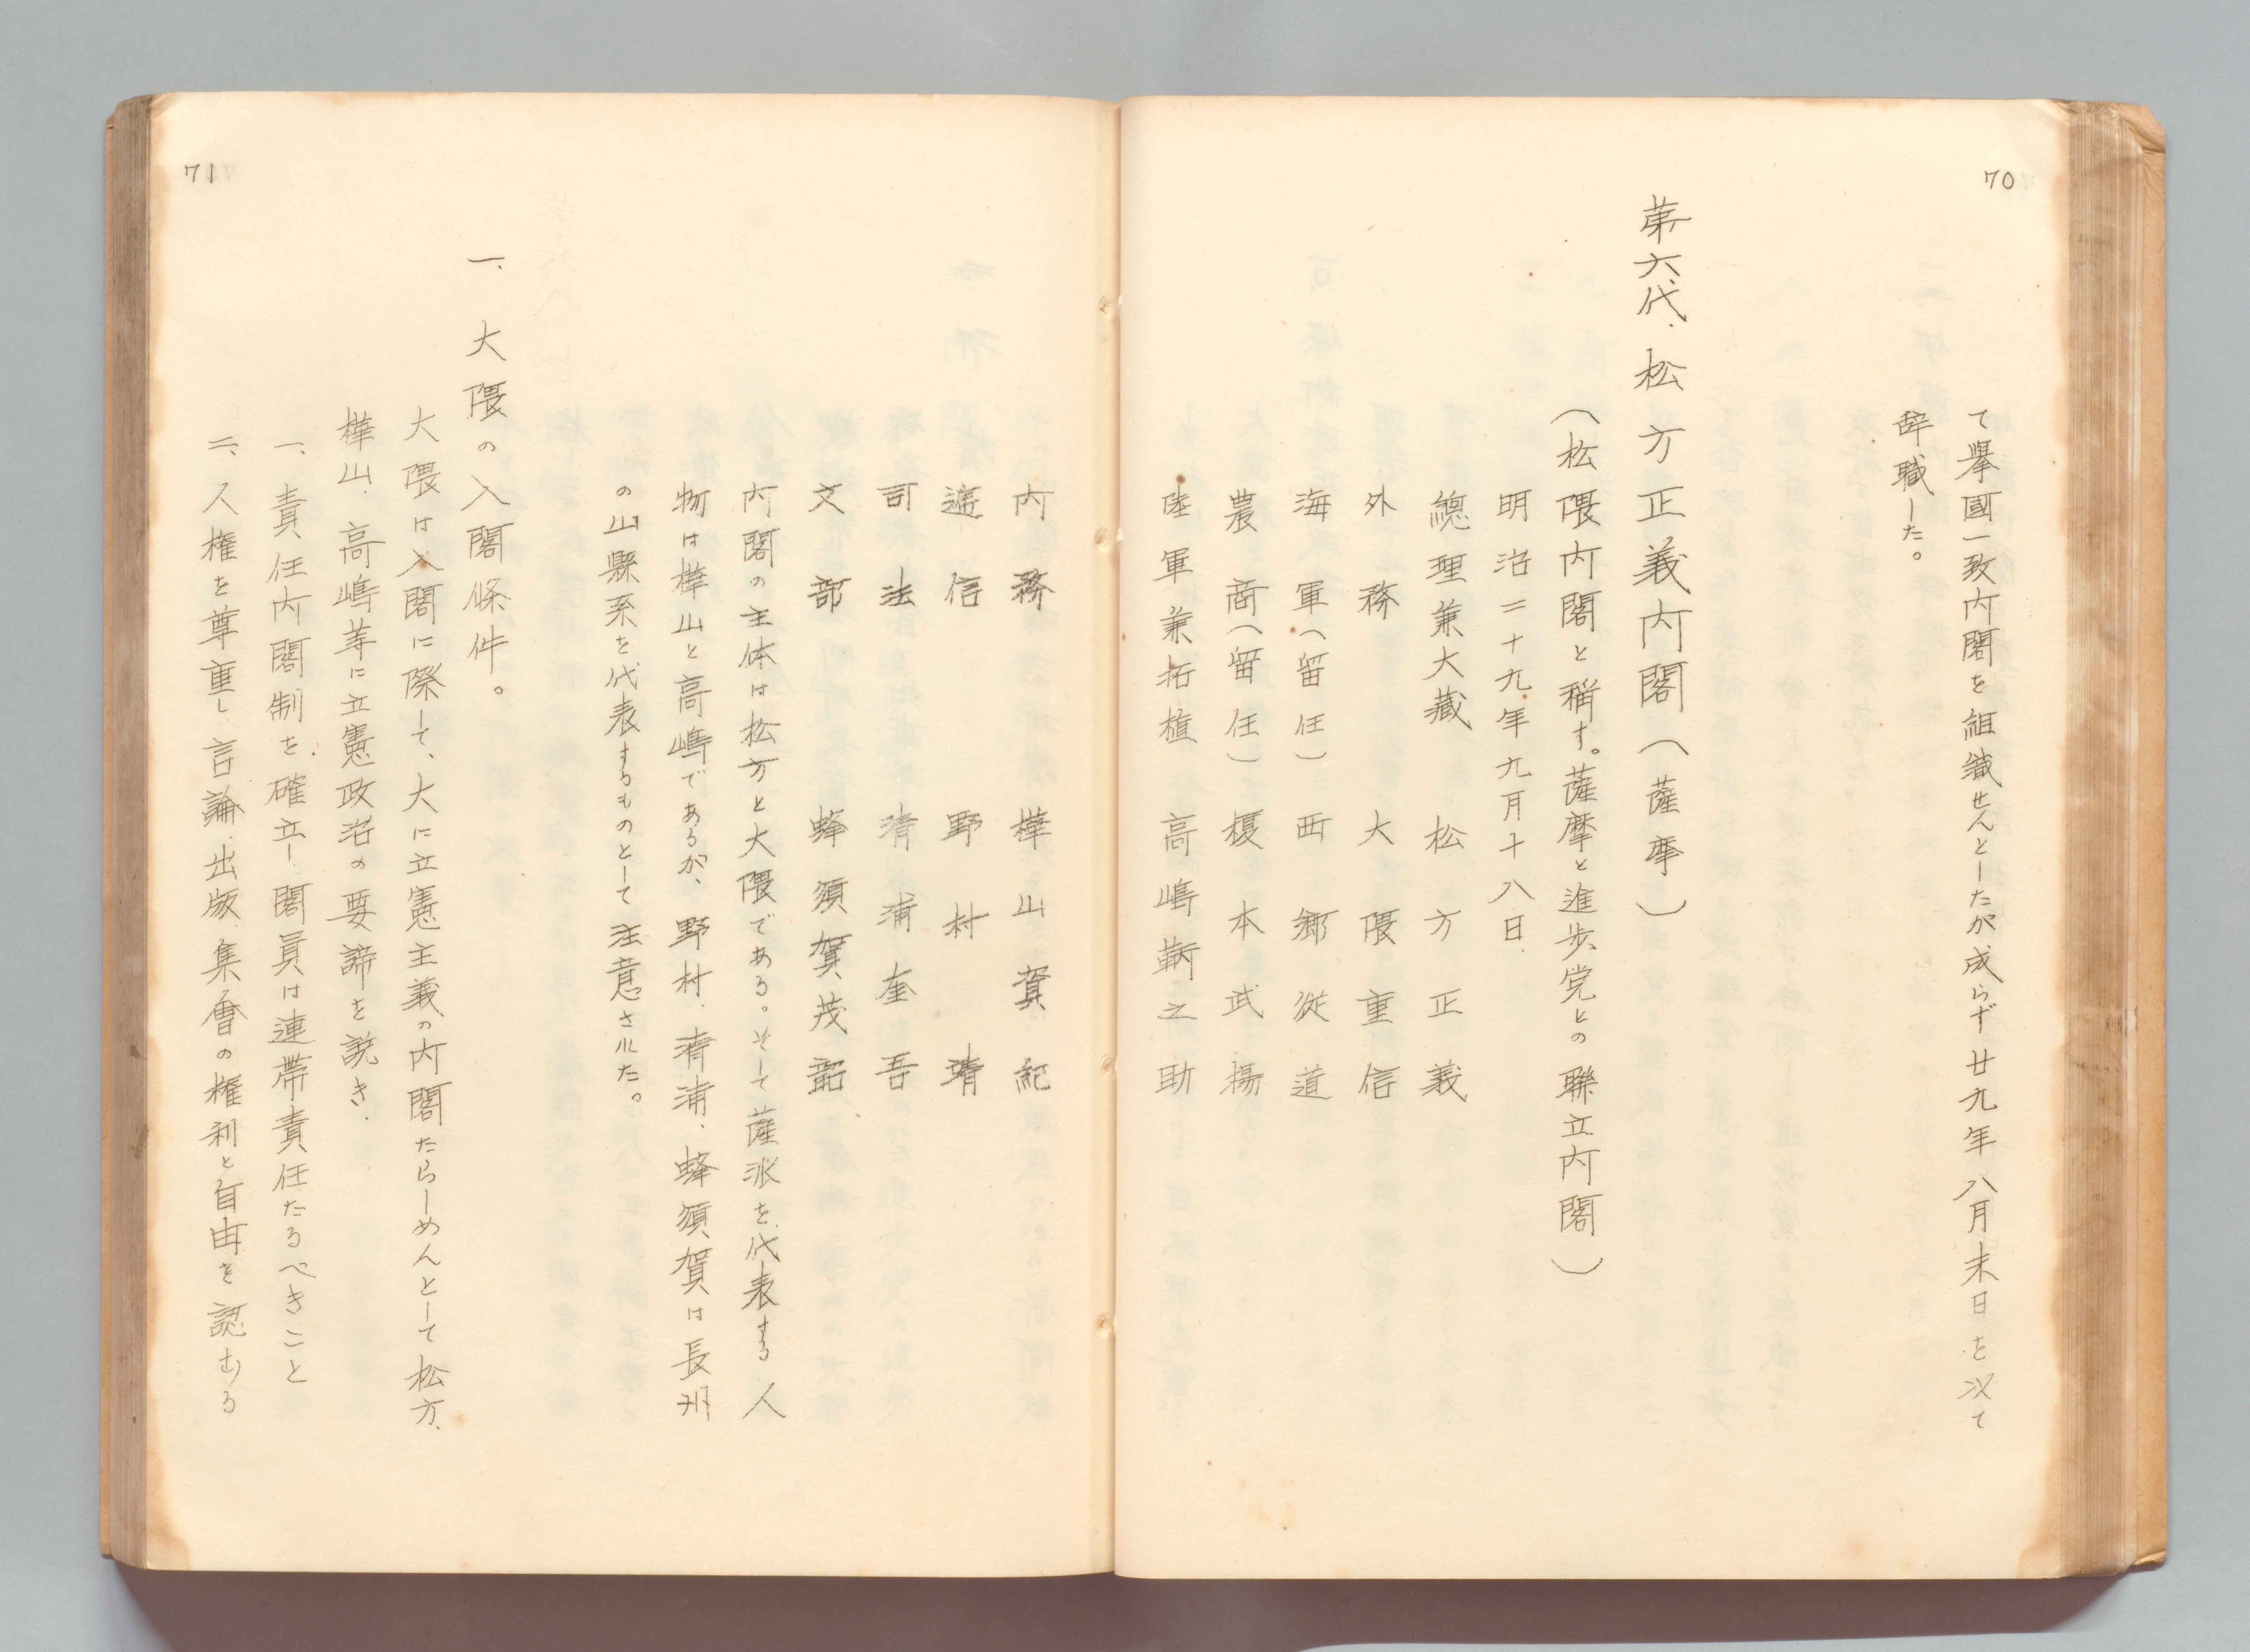 70
て擧國一致内閣を組織せんとしたが成らず廿九年八月末日を以て
辞職した。
第六代．松方正義内閣（薩摩）
（松隈内閣と稱す。薩摩と進歩党との聯立内閣）
明治二十九年九月十八日．
總理兼大藏　松方正義
外務　大隈重信
海軍（留任）　西郷従道
農商（留任）　榎本武揚
陸軍兼拓植　高嶋鞆之助
内務　樺山資紀
逓信　野村靖
司法　清浦奎吾
文部　蜂須賀茂韶
内閣の主体は松方と大隈である。そして薩派を代表する人
物は樺山と高嶋であるが、野村．清浦．蜂須賀は長州
の山縣系を代表するものとして注意された。
一、大隈の入閣條件。
大隈は入閣に際して、大に立憲主義の内閣たらしめんとして松方．
樺山．高嶋等に立憲政治の要諦を説き．
一、責任内閣制を．確立し閣員は連帯責任たるべきこと
二、人権を尊重し言論．出版．集會の権利と自由を認むる
71